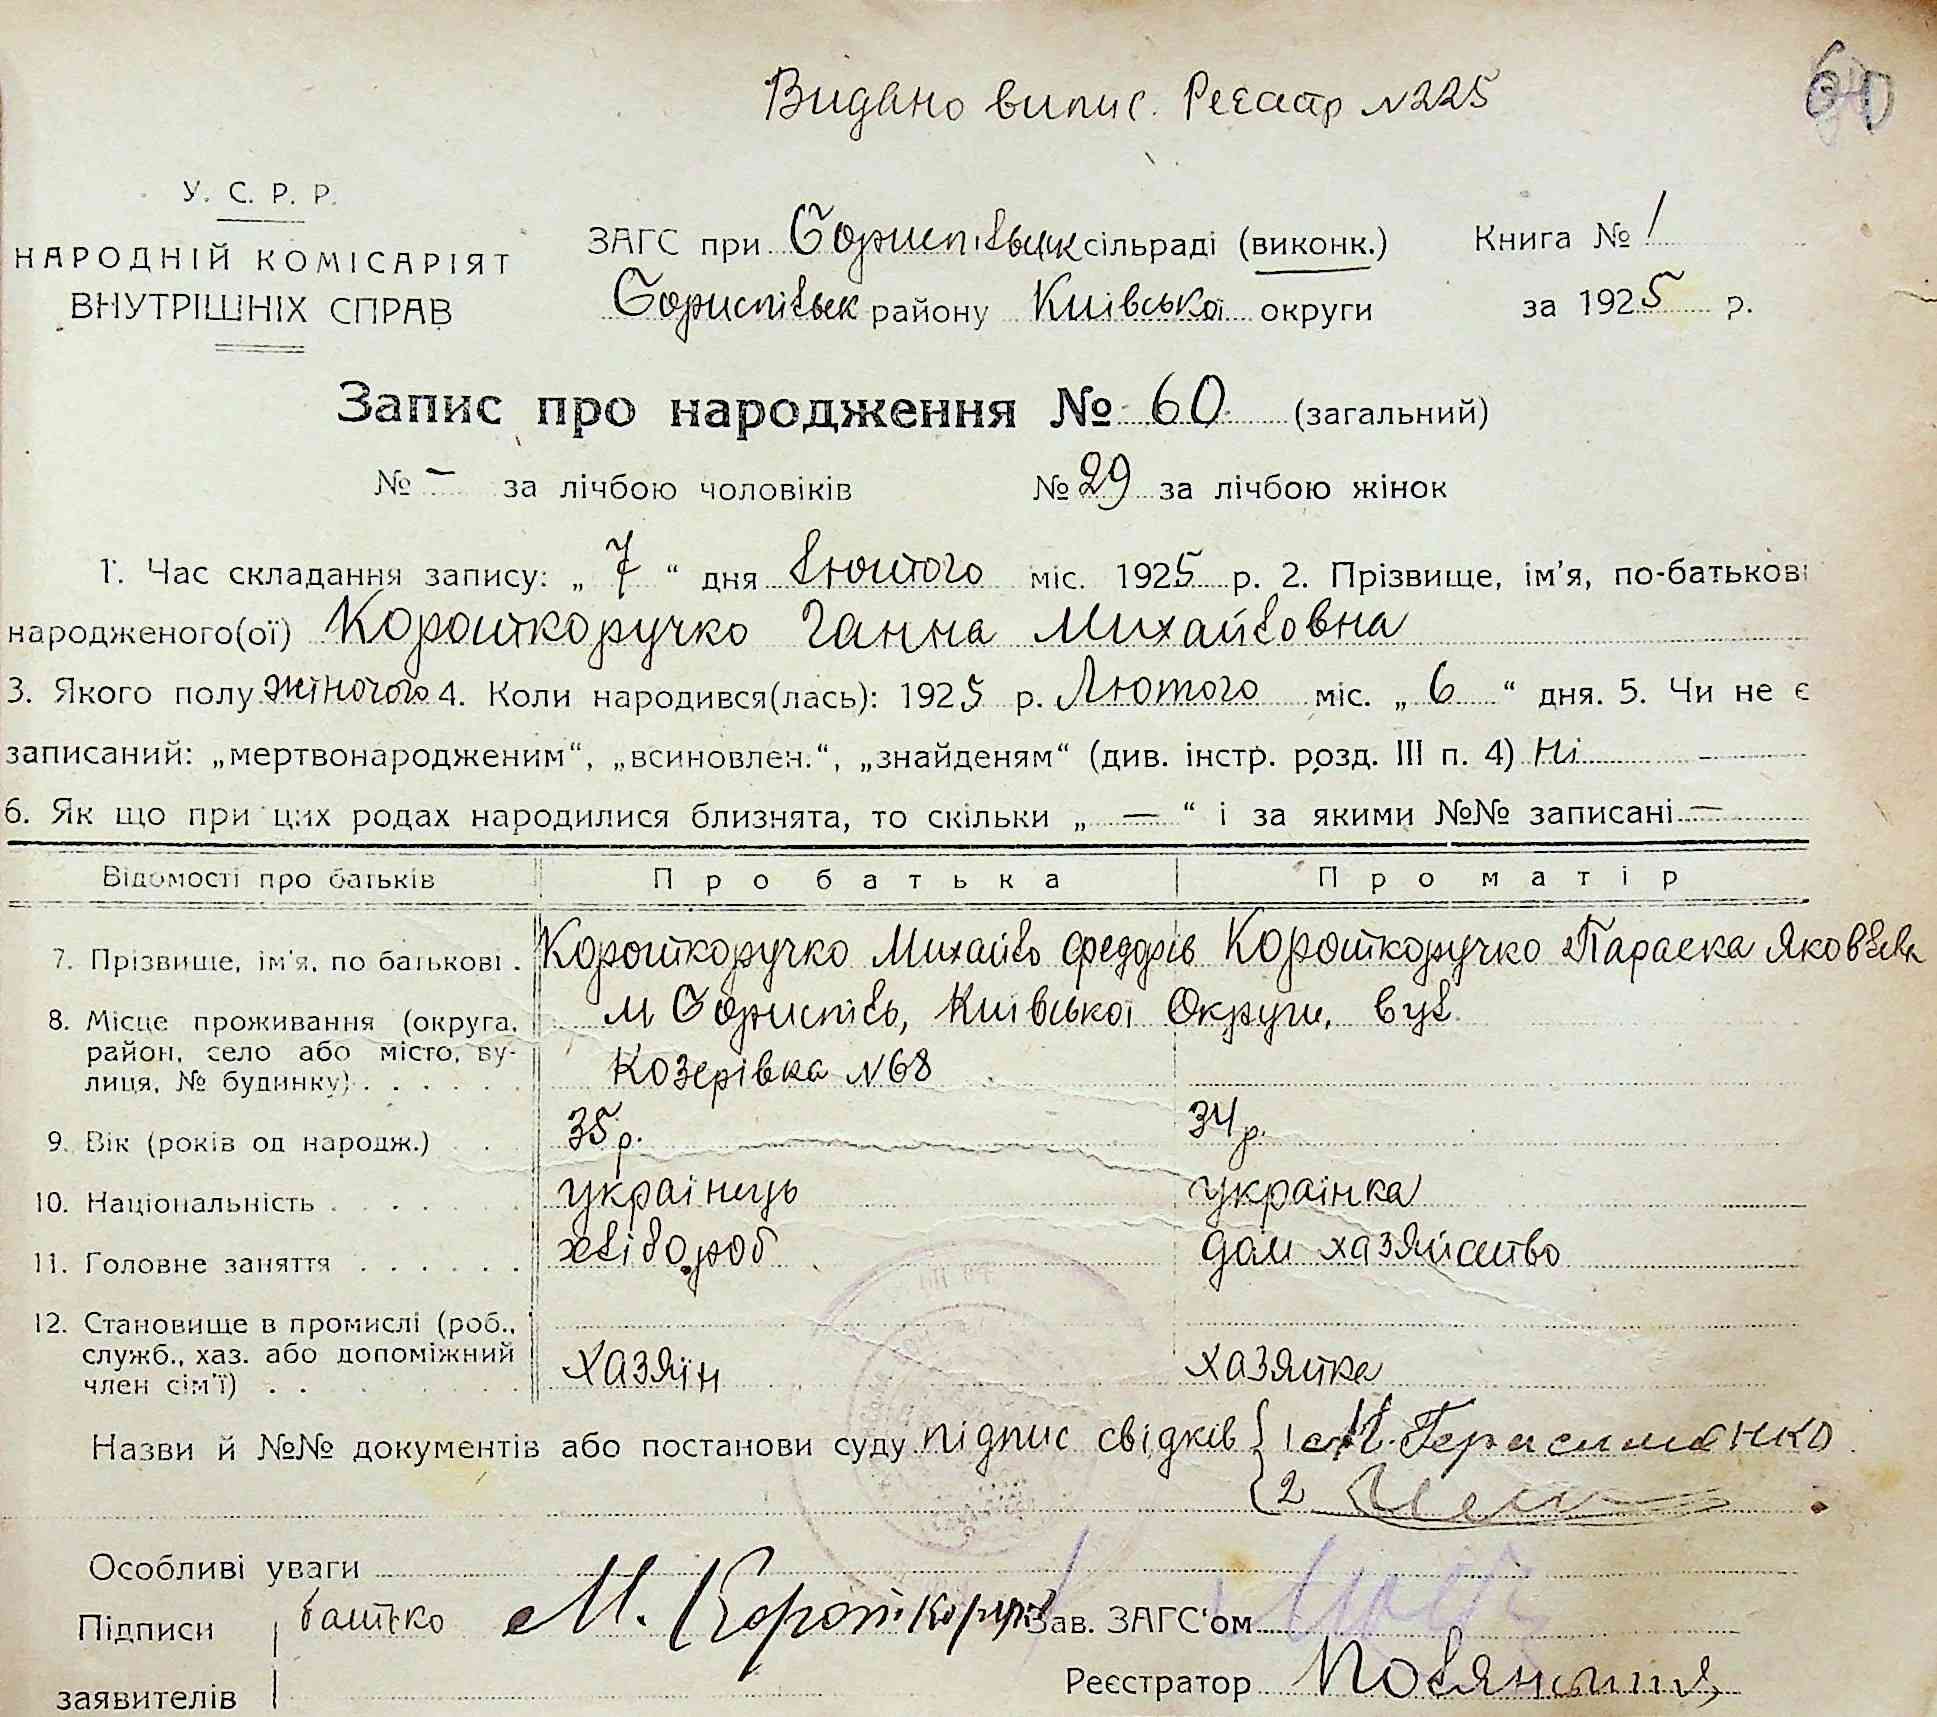 Видано випис. Реєстр №225
60
У. С. Р. Р.
НАРОДНІЙ КОМІСАРІЯТ
ВНУТРІШНІХ СПРАВ
ЗАГС при Бориспільськ сільраді (виконк.)
Бориспільськ району Київської округи
Книга № 1
за 1925 р.
Запис про народження № 60 (загальний)
№ – за лічбою чоловіків № 29 за лічбою жінок
1. Час складання запису: „ 7 “ дня лютого міс. 1925 р. 2. Прізвище, ім'я, по-батькові
народженого(ої) Короткоручко Ганна Михайловна
3. Якого полу жіночого 4. Коли народився(лась): 1925 р. Лютого міс. „ 6 “ дня. 5. Чи не є
записаний: „мертвонародженим“, „всиновлен.“, „знайденям“ (див. інстр. розд. III п. 4) Ні
6. Як що при цих родах народилися близнята, то скільки „ — “ і за якими №№ записані —
Відомості про батьків Про батька Про матір
7. Прізвище, ім'я, по батькові . Короткоручко Михайло Федорів Короткоручко Параска Яковлівн
8. Місце проживання (округа, м Бориспіль, Київської Округи, вул
район, село або місто, ву-
лиця, № будинку) . . . . . . Козерівка №68
9. Вік (років од народж.) . . 35 р. 34 р.
10. Національність . . . . . . . українець українка
11. Головне заняття . . . . . . хлібороб дом хазяйство
12. Становище в промислі (роб.,
служб., хаз. або допоміжний
член сім'ї) . . хазяїн хазяйка
Назви й №№ документів або постанови суду підпис свідків { 1 М. Герасименко
2
Особливі уваги
Підписи батько М. Короткоручко Зав. ЗАГС'ом
заявителів Реєстратор